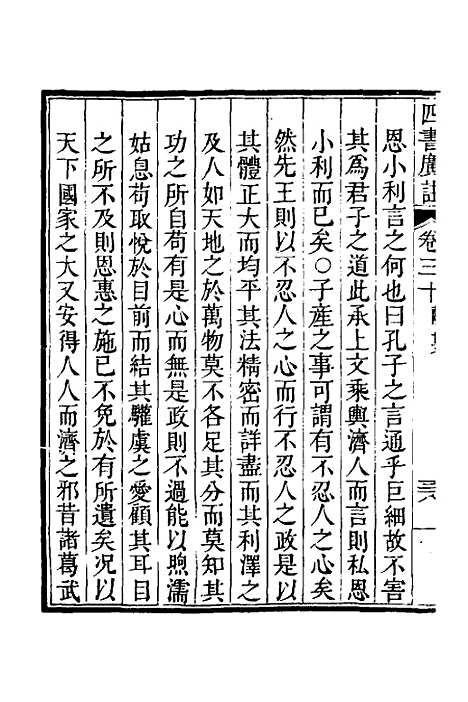 四書廣註 卷三十
恩小利言之何也曰孔子之言通乎巨細故不害
其爲君子之道此承上文乘輿濟人而言則私恩
小利而已矣○子產之事可謂有不忍人之心矣
然先王則以不忍人之心而行不忍人之政是以
其體正大而均平其法精密而詳盡而其利澤之
及人如天地之於萬物莫不各足其分而莫知其
功之所自苟有是心而無是政則不過能以煦濡
姑息苟取悅於目前而結其驩虞之愛顧其耳目
之所不及則恩惠之施已不免於有所遺矣况以
天下國家之大又安得人人而濟之邪昔諸葛武